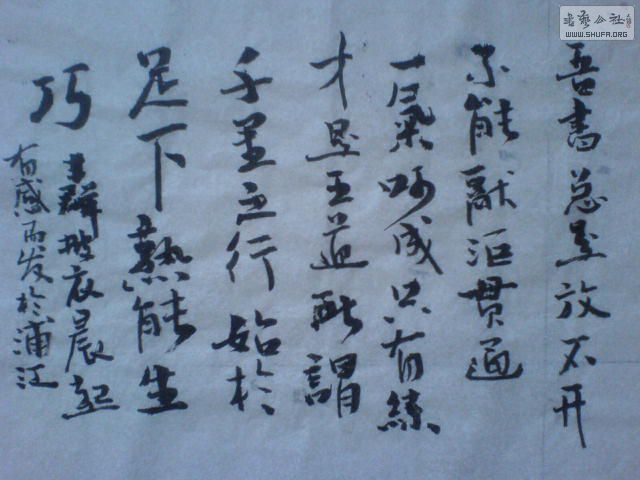 吾書总是放不开
不能融汇贯通
一气呵成只有練
才是王道所謂
千里之行始於
足下熟能生
巧 群披衣晨起
有感而发於浦江
書艺公社
WWW.SHUFA.ORG